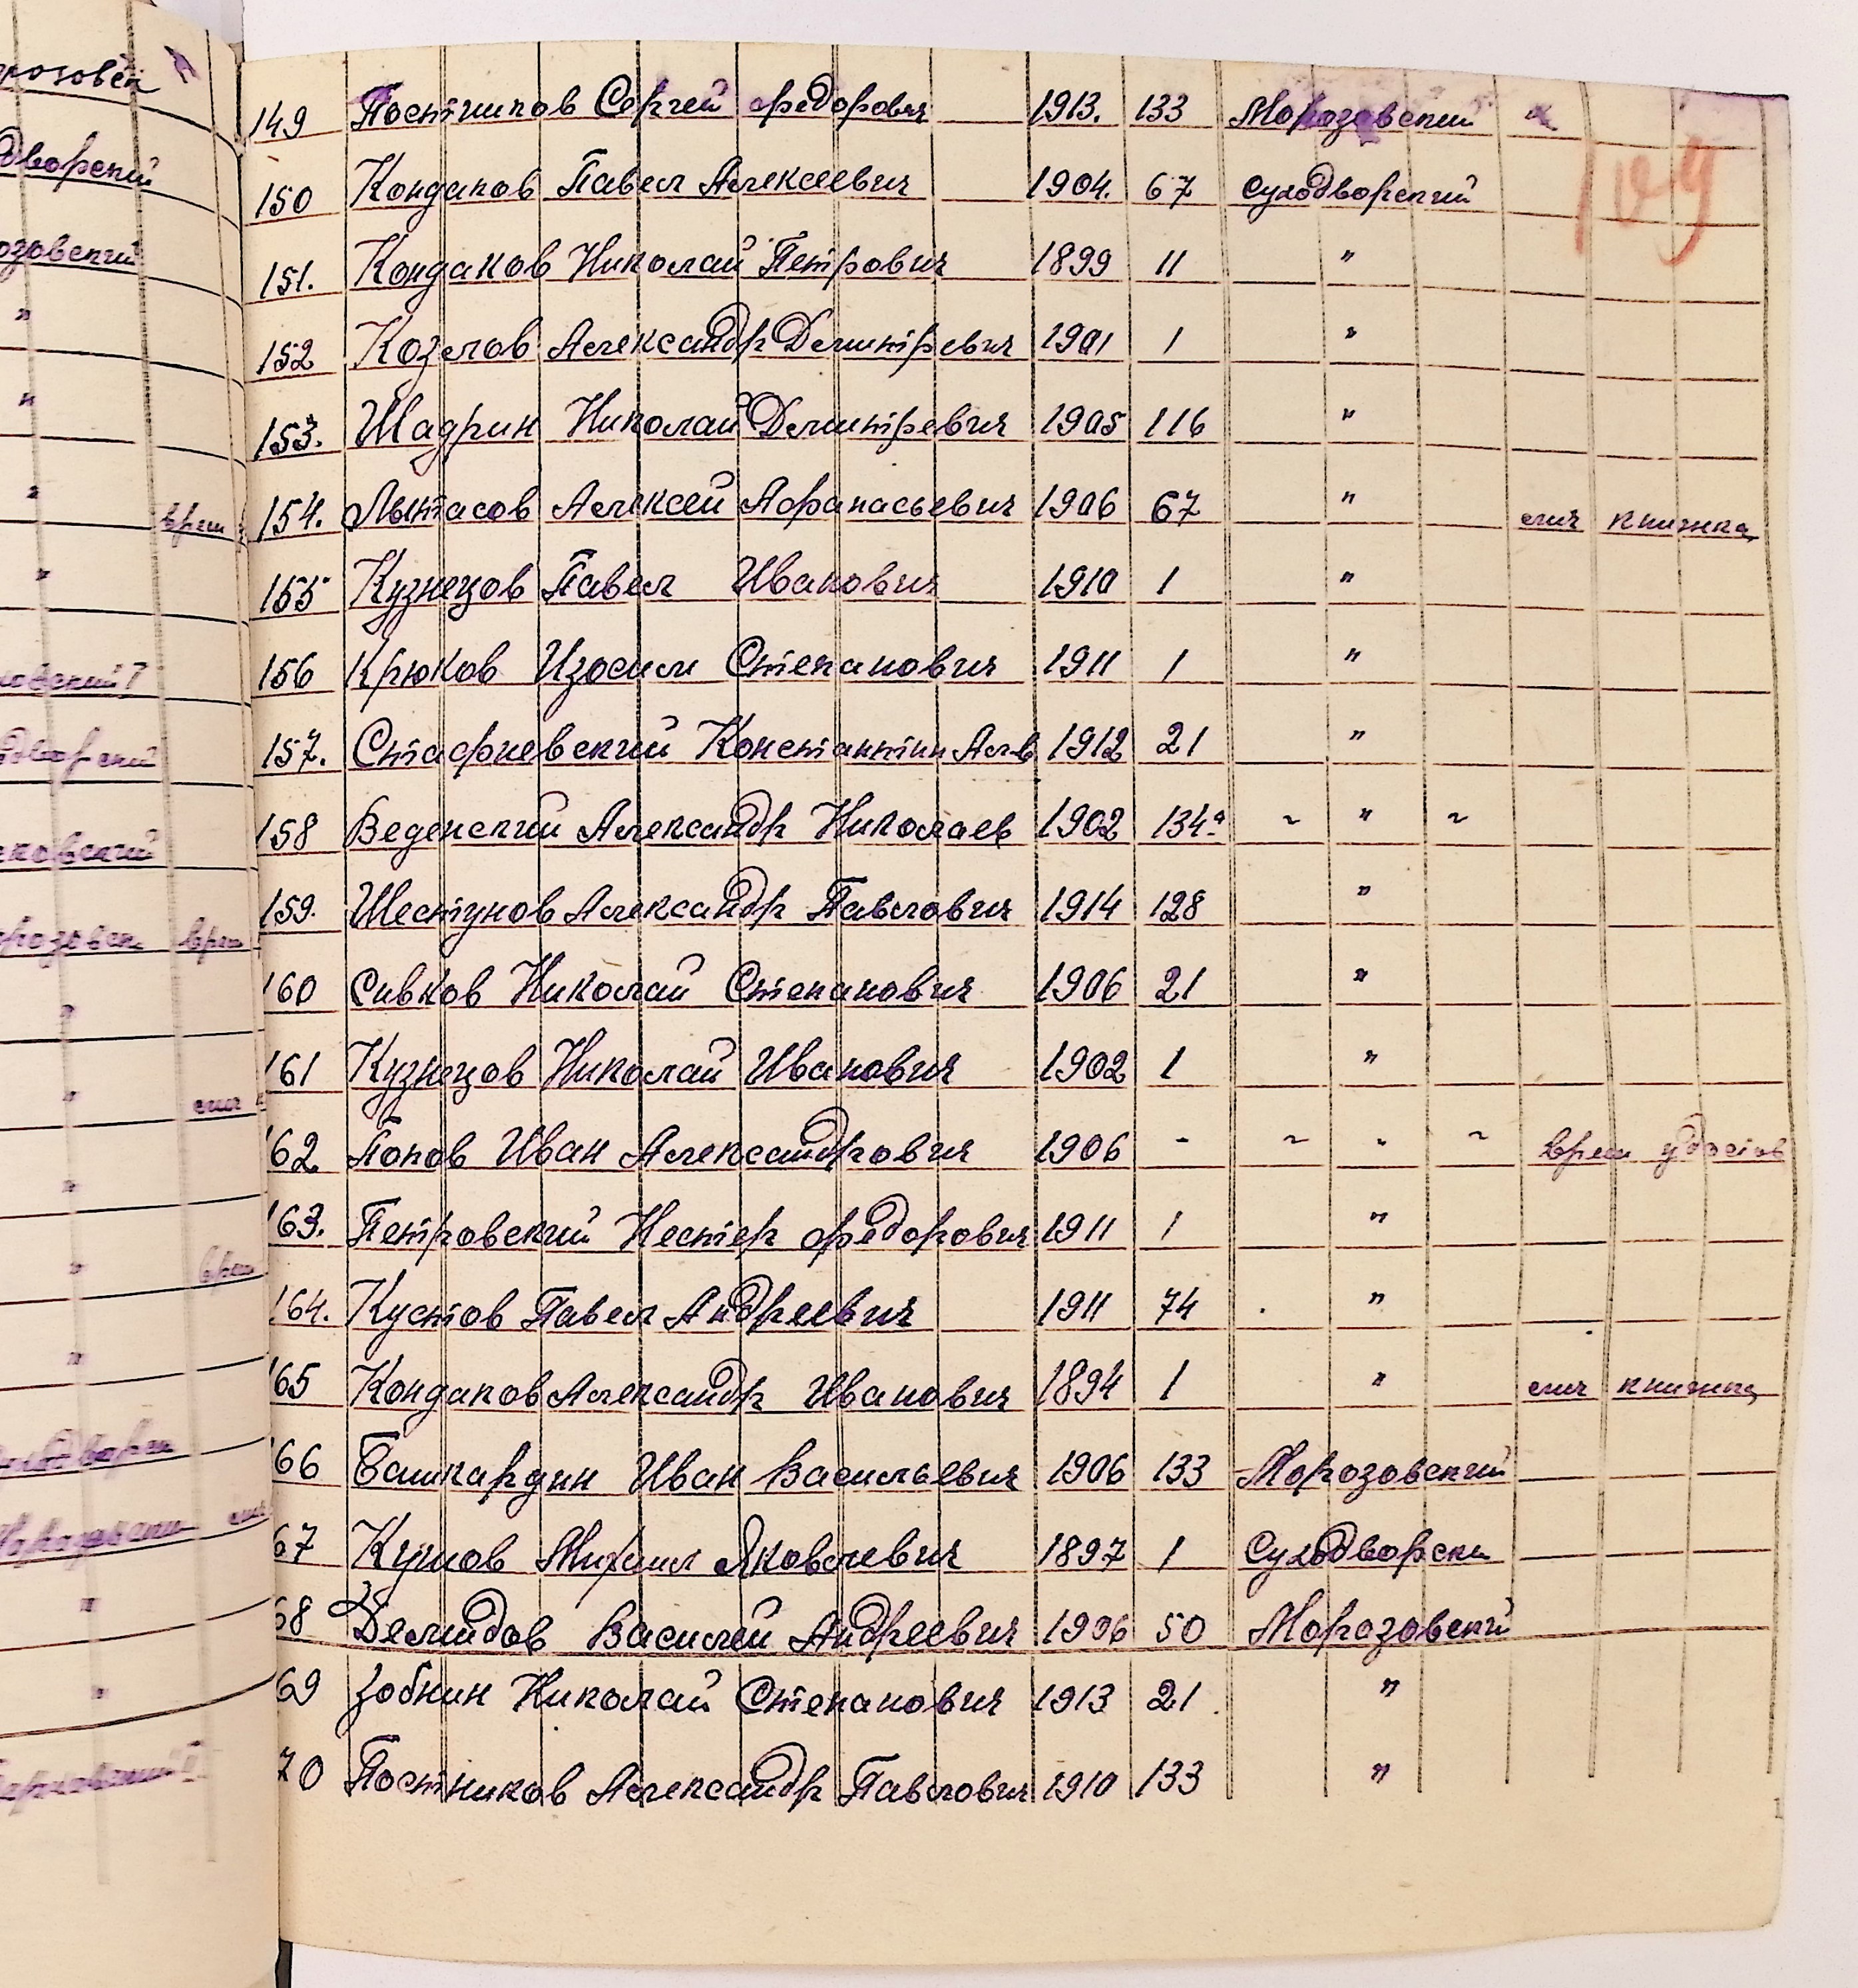 109
149 Постников Сергей Федорович 1913. 133 Морозовский
150 Кондаков Павел Алексеевич 1904. 67 Суходворский
151. Кондаков Николай Петрович 1899 11 "
152 Козлов Александр Демитревич 1901 1 "
153. Шадрин Николай Демитревич 1905 116 "
154. Лыткасов Алексей Афанасьевич 1906 67 " лич книжка
155 Кузнецов Павел Иванович 1910 1 "
156 Крюков Изосим Степанович 1911 1 "
157. Стафиевский Константин Ал-в 1912 21 "
158 Веденский Александр Николаев 1902 134а ~ " ~
159. Шестунов Александр Павлович 1914 128 "
160 Сивков Николай Степанович 1906 21 "
161 Кузнецов Николай Иванович 1902 1 "
162 Попов Иван Александрович 1906 - ~ " ~ врем удостов
163. Петровский Нестер Федорович 1911 1 "
164. Кустов Павел Андреевич 1911 74 "
165 Кондаков Александр Иванович 1894 1 " лич книжка
66 Башкардин Иван Васильевич 1906 133 Морозовский
67 Михаил Яковлевич 1897 1 Суходворски
68 Демидов Василий Андреевич 1906 50 Морозовский
69 Зобнин Николай Степанович 1913 21 "
70 Постников Александр Павлович 1910 133 "